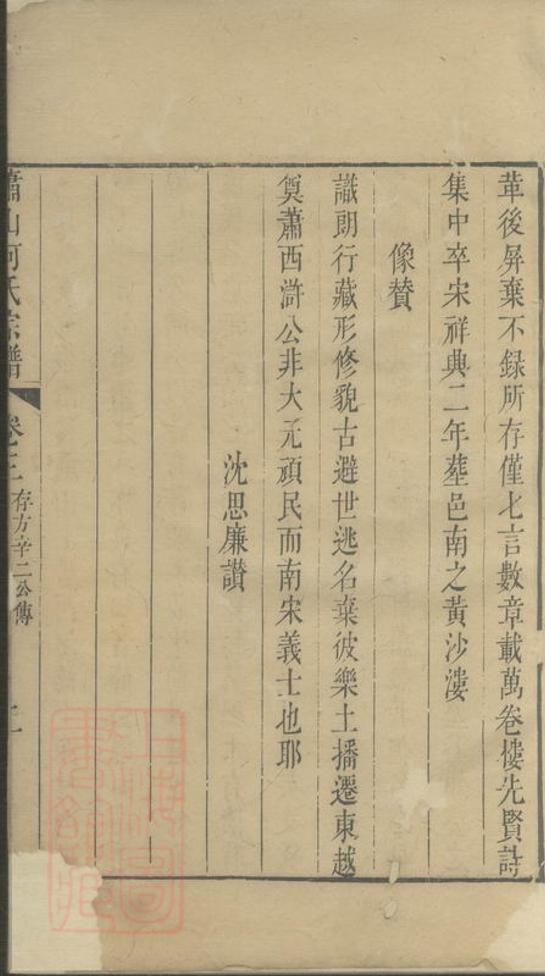 軰後屏棄不録所存僅七言數章載萬卷樓先賢詩
集中卒宋祥興二年塟邑南之黃沙漊
像贊
識朗行藏形修貌古避世逃名棄彼樂土播遷東越
奠蕭西滸公非大元頑民而南宋義士也耶
沈思廉讃
蕭山何氏宗譜
卷二 存方辛二公傳
上海圖書館藏